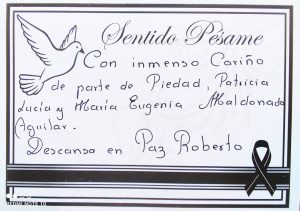 Sentido Pésame
Con inmenso Cariño
de parte de Piedad, Patricia
Lucía y María Eugenia Maldonado
Aguilar.
Descansa en Paz Roberto